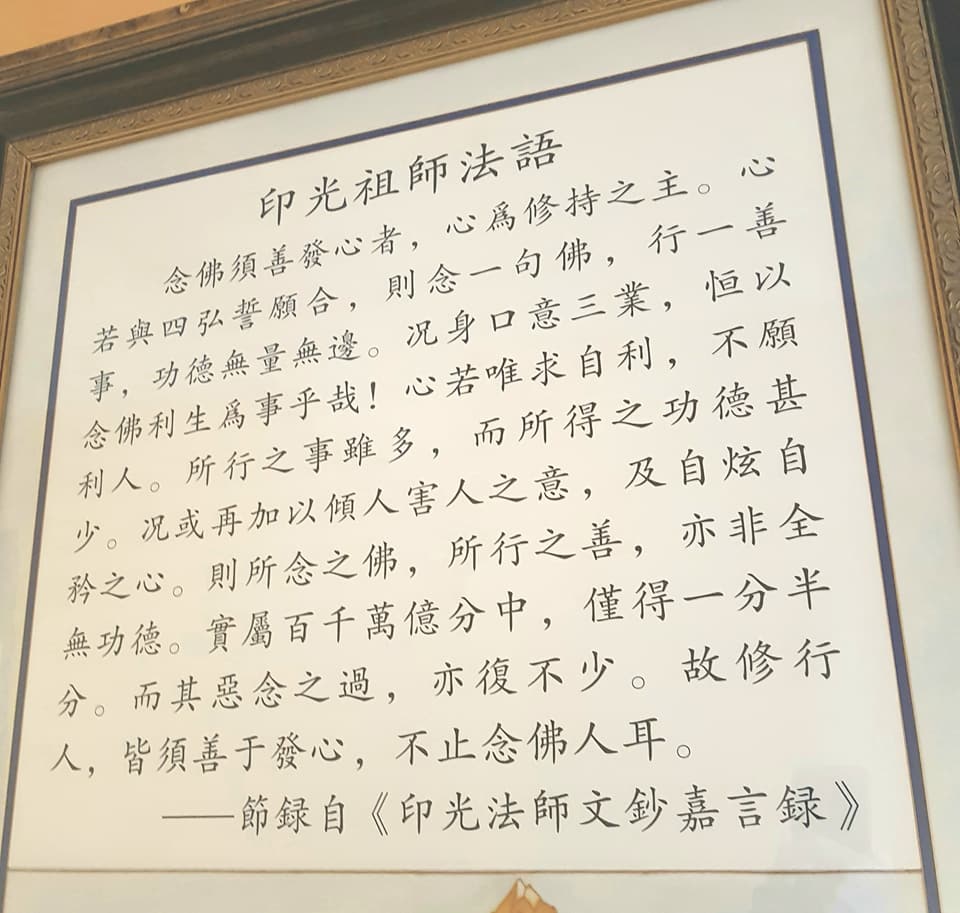 印光祖師法語
念佛須善發心者，心爲修持之主。心
若與四弘誓願合，則念一句佛，行一善
事，功德無量無邊。况身口意三業，恒以
念佛利生爲事乎哉！心若唯求自利，不願
利人。所行之事雖多，而所得之功德甚
少。况或再加以傾人害人之意，及自炫自
矜之心。則所念之佛，所行之善，亦非全
無功德。實屬百千萬億分中，僅得一分半
分。而其惡念之過，亦復不少。故修行
人，皆須善于發心，不止念佛人耳。
——節録自《印光法師文鈔嘉言録》